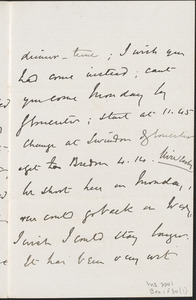 dinner-time; I wish you
had come instead; cant
you come Monday by
Gloucester; start at 11.45
change at Swindon & Gloucester
& get to Bredon 4.14.
be short here on Monday,
we could go back on
I wish I could stay longer.
It has been very wet